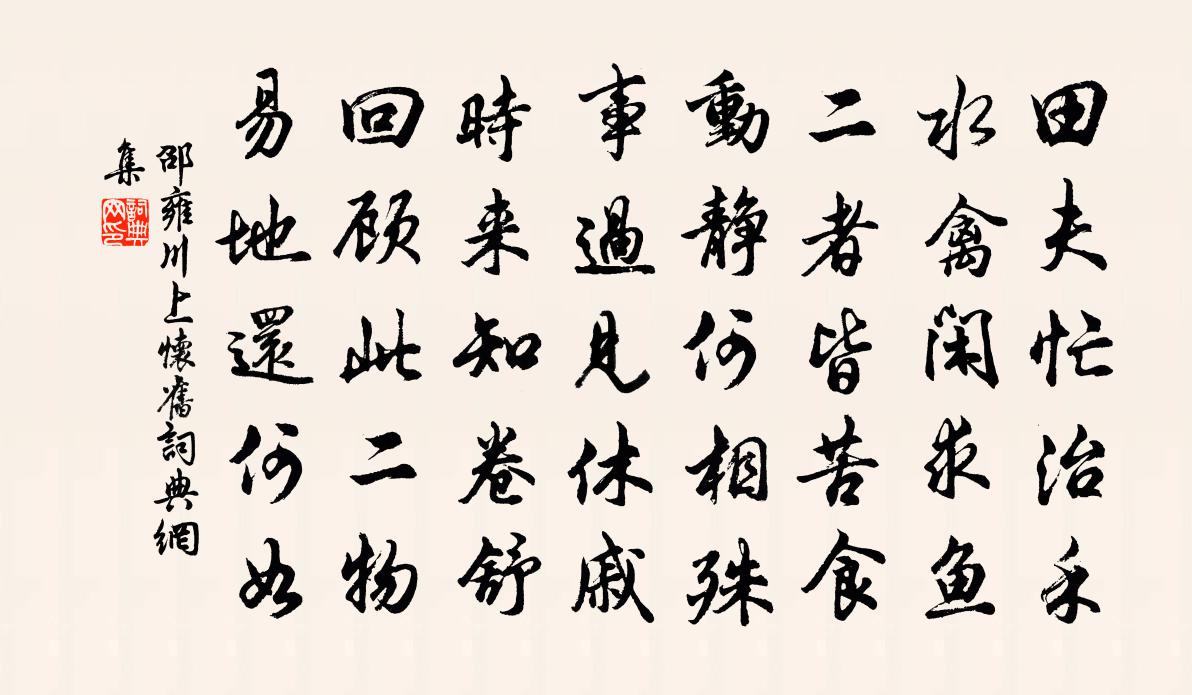 田夫忙治禾
水禽闲求魚
二者皆苦食
動静何相殊
事過見休戚
時来知卷舒
回顾此二物
易地還何如
邵雍川上懷舊詞典網
集
詞典
网印